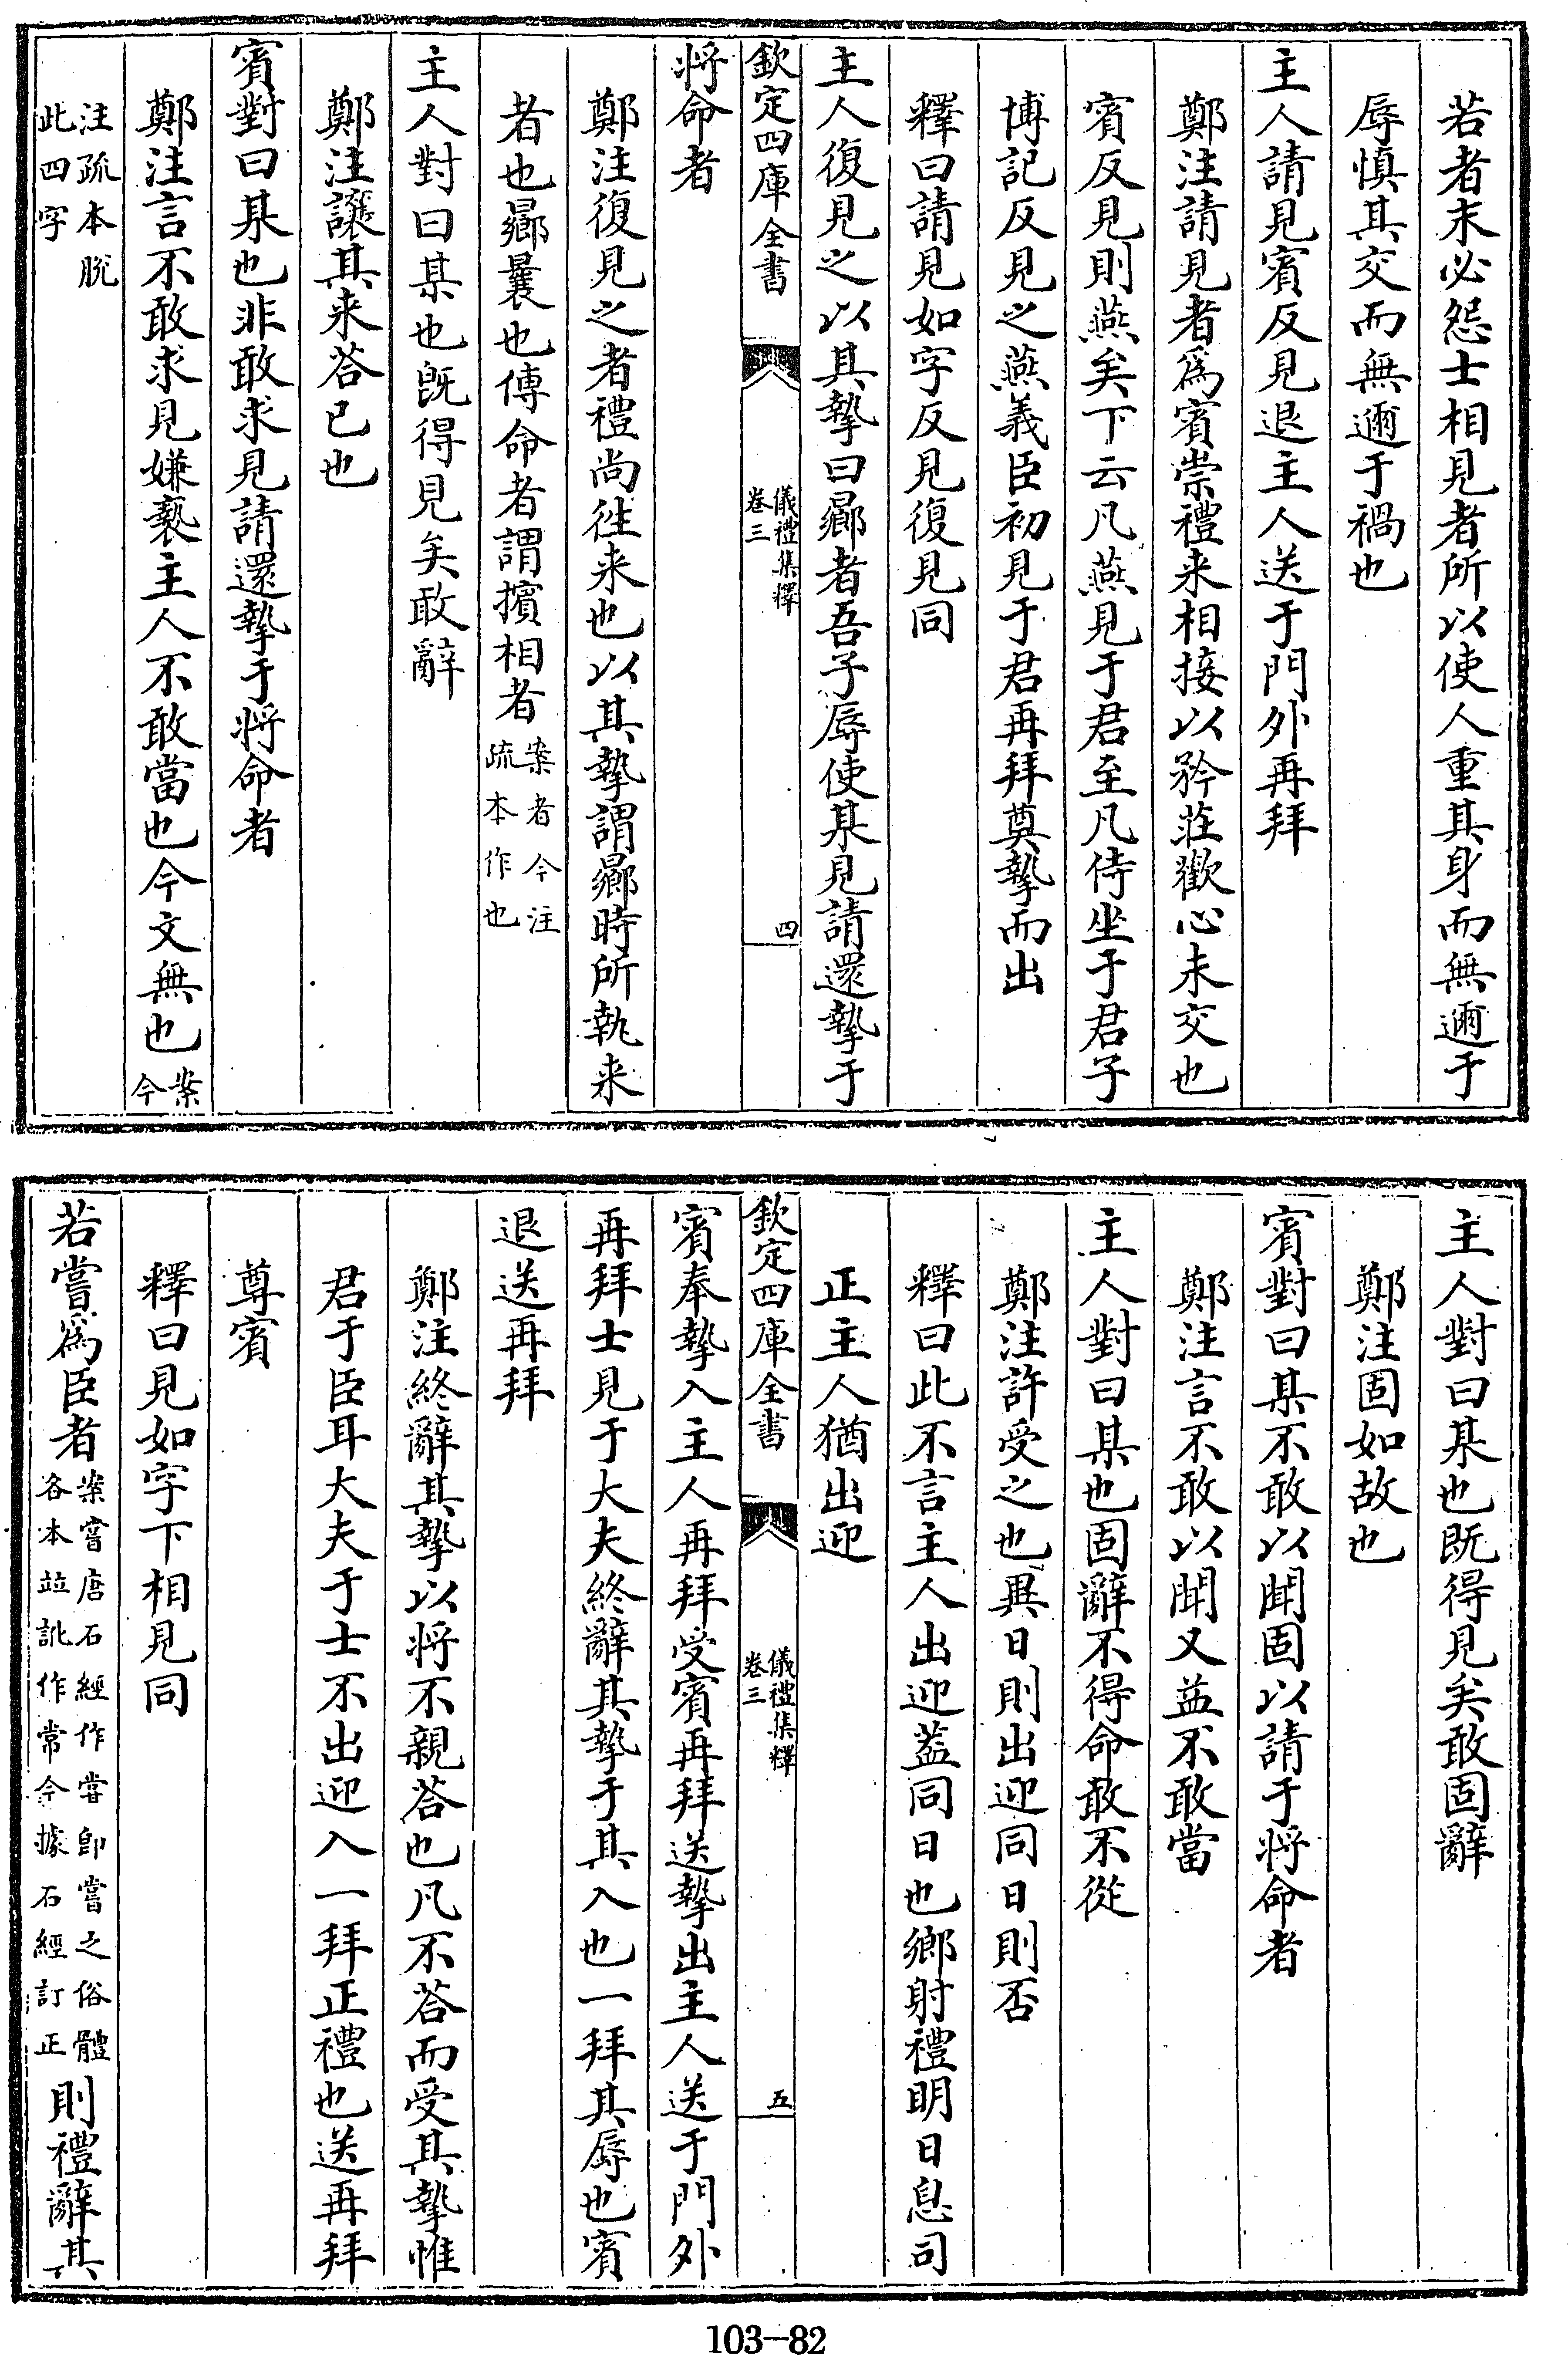 若者末必怨士相見者所以使人重其身而無邇于
辱慎其交而無邇于禍也
主人請見賓反見退主人送于門外再拜
鄭注請見者爲賓崇禮来相接以矜莊歡心未交也
賓反見則燕矣下云凡燕見于君至凡侍坐于君子
博記反見之燕義臣初見于君再拜奠摯而出
釋曰請見如字反見復見同
主人復見之以其摯曰曏者吾子辱使某見請還摯于
欽定四庫全書
儀禮集釋
卷三
四
将命者
鄭注復見之者禮尚徃来也以其摯謂曏時所執来
者也曏曩也傳命者謂擯相者案者今注疏本作也
主人對曰某也既得見矣敢辭
鄭注讓其来荅已也
賓對曰某也非敢求見請還摯于将命者
鄭注言不敢求見嫌褻主人不敢當也今文無也案今
注疏本脱此四字
主人對曰某也既得見矣敢固辭
鄭注固如故也
賓對曰某不敢以聞固以請于将命者
鄭注言不敢以聞又益不敢當
主人對曰某也固辭不得命敢不從
鄭注許受之也異日則出迎同日則否
釋曰此不言主人出迎葢同日也鄉射禮明日息司
正主人猶出迎
欽定四庫全書
儀禮集釋
卷三
五
賓奉摯入主人再拜受賓再拜送摯出主人送于門外
再拜士見于大夫終辭其摯于其入也一拜其辱也賓
退送再拜
鄭注終辭其摯以将不親荅也凡不荅而受其摯惟
君于臣耳大夫于士不出迎入一拜正禮也送再拜
尊賓
釋曰見如字下相見同
若嘗爲臣者案嘗唐石經作甞即嘗之俗體各本竝訛作常今據石經訂正則禮辭其
103-82